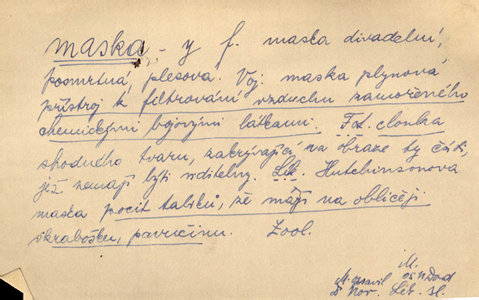 maska, -y f. maska divadelní,
posmrtná, plesova. Voj. maska plynová
přístroj k filtrování vzduchu zamořeného
chemickými bojovými látkami. Fot. clonka
vhodného tvaru, zakrývající na obraze ty části,
jež nemají býti viditelny. Lék. Hutchinsonova
maska pocit taliků, že mají na obličeji
škrabošku, pavučinu. Zool.
M.
Nor. Lit. sl.